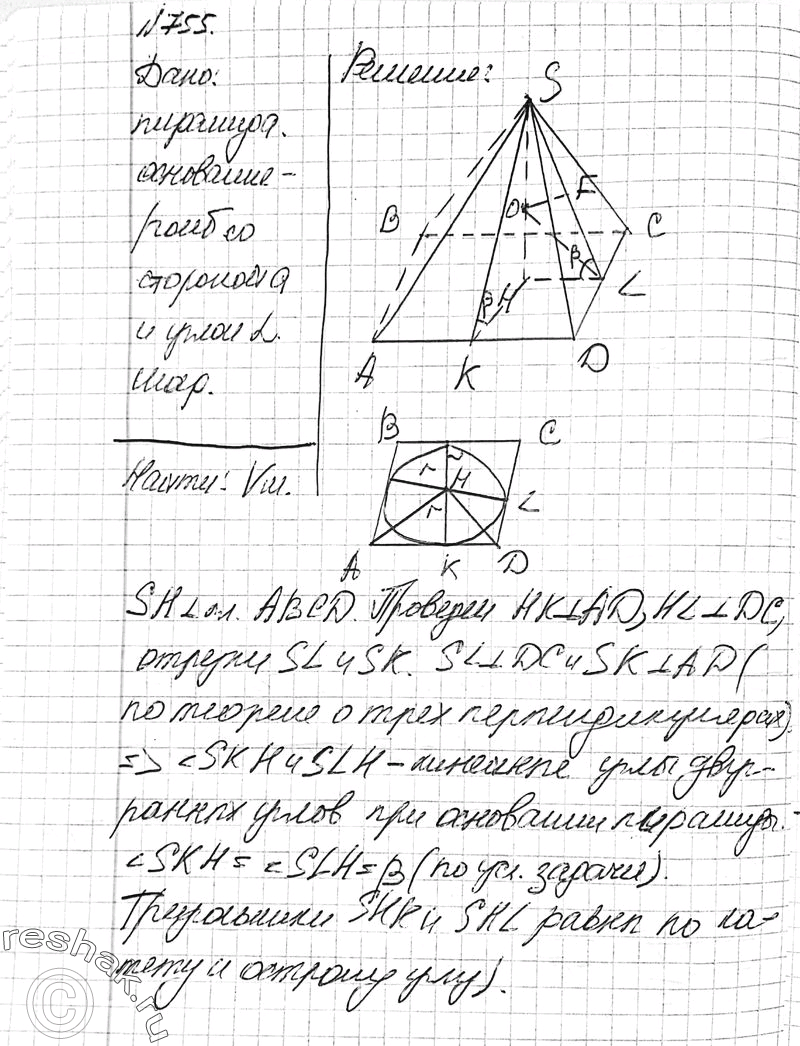 №755.
Дано:
пирамида.
основание -
ромб со
стороной a
и углом α.
шар.
Найти: Vш.
Решение:
S
B
O
F
C
β
L
β
H
A
K
D
B
C
r
H
L
r
A
K
D
SH⊥пл. ABCD. Проведем HK⊥AD, HL⊥DC,
отрезки SL и SK. SL⊥DC и SK⊥AD (
по теореме о трех перпендикулярах)
=> ∠SKH и SLH - линейные углы двугр-
ранных углов при основании пирамиды.
∠SKH = ∠SLH = β (по усл. задачи).
Треугольники SHK и SHL равны по ка-
тету и острому углу).
reshak.ru
©